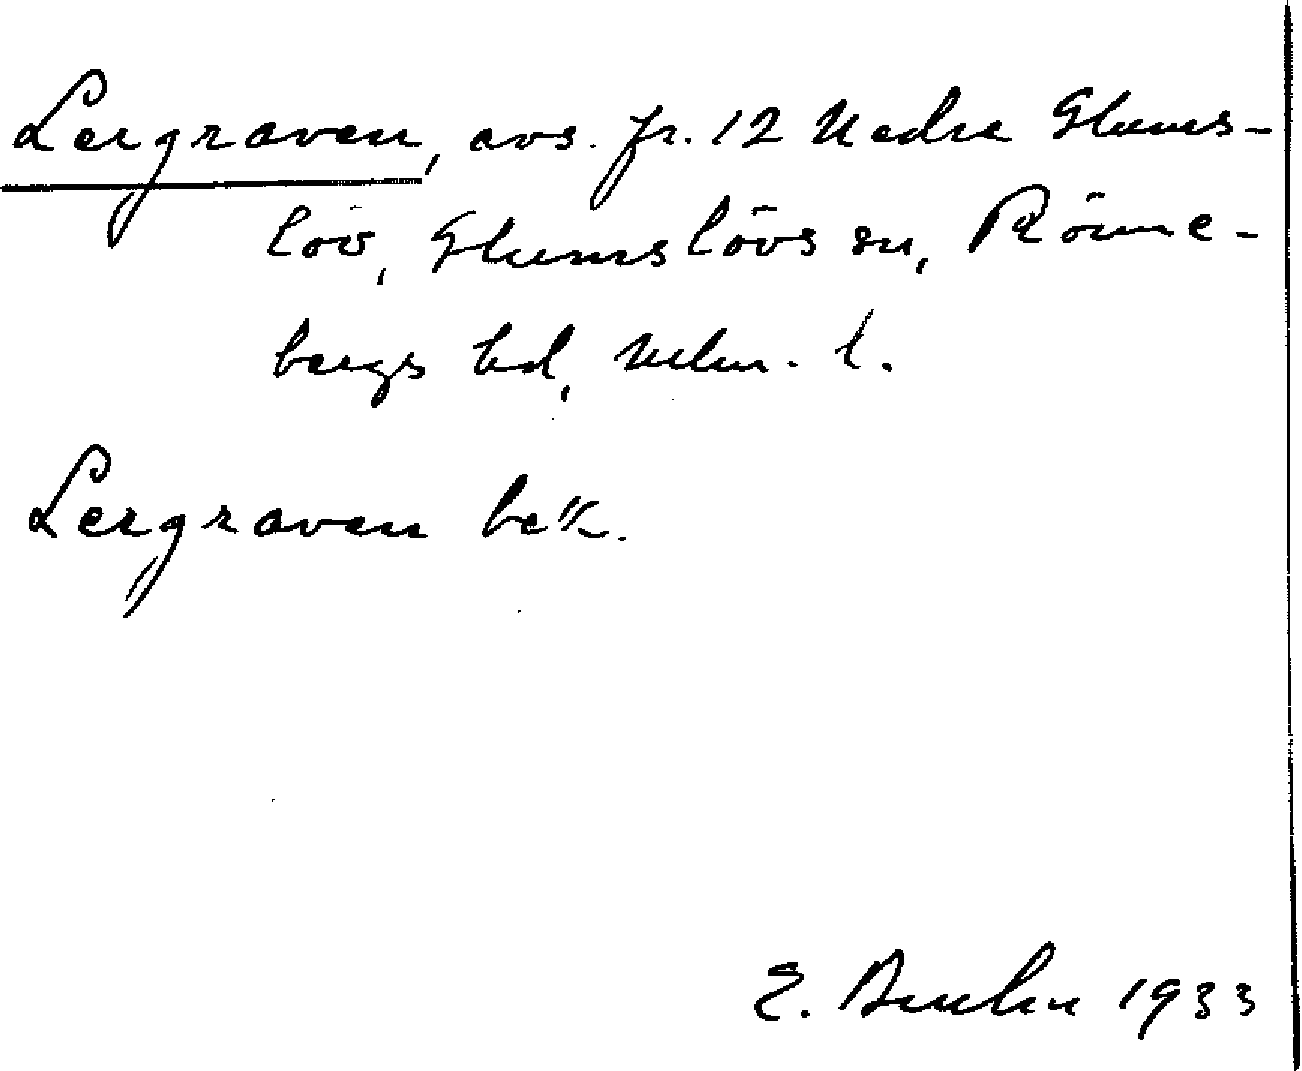 Lergraven, avs. fr. 12 Nedre Glums-
löv, Glumslövs sn, Rönne-
bergs hd, Mlm. l.
Lergraven bek.
E. Bruhn 1933